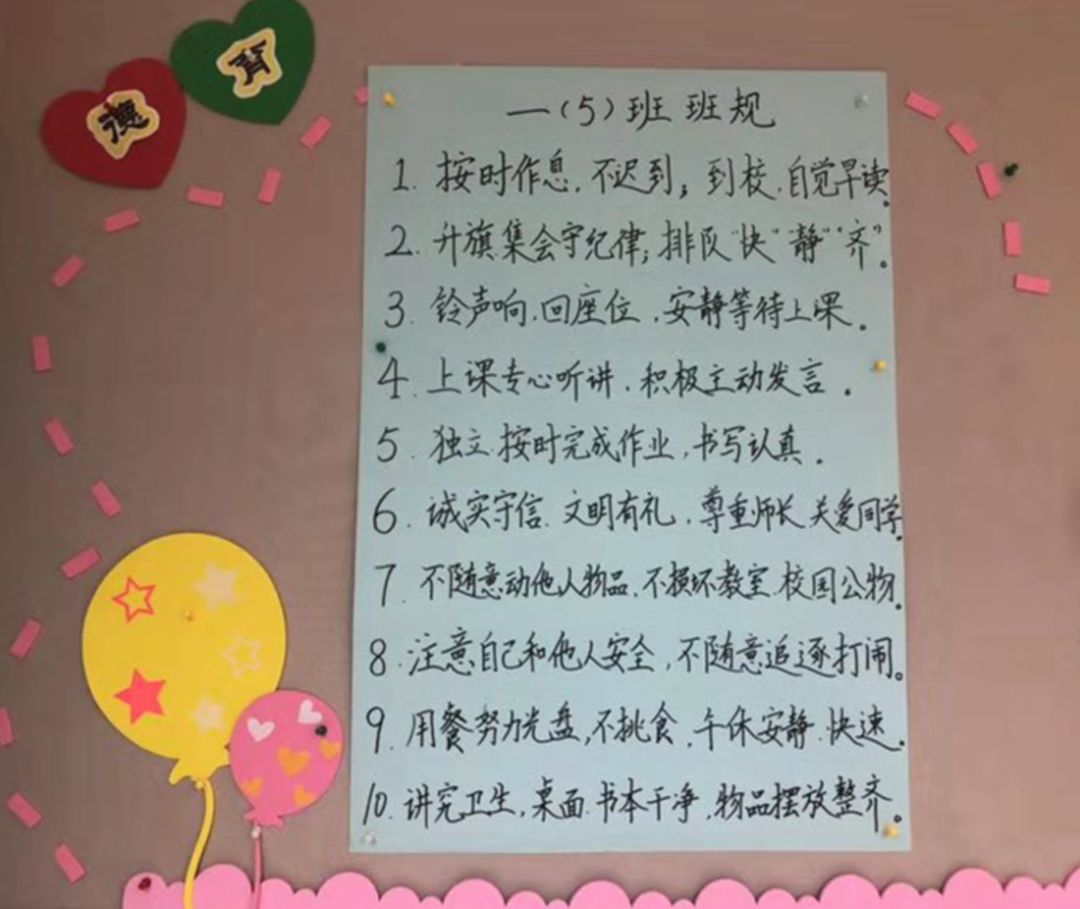 德育
一(5)班班规
1. 按时作息,不迟到;到校.自觉早读。
2. 升旗.集会守纪律;排队"快""静""齐"。
3. 铃声响.回座位.安静等待上课。
4. 上课专心听讲.积极主动发言。
5. 独立.按时完成作业,书写认真。
6. 诚实守信.文明有礼.尊重师长.关爱同学。
7. 不随意动他人物品.不损坏教室.校园公物。
8. 注意自己和他人安全,不随意追逐打闹。
9. 用餐努力光盘,不挑食.午休安静.快速。
10. 讲究卫生,桌面.书本干净,物品摆放整齐。